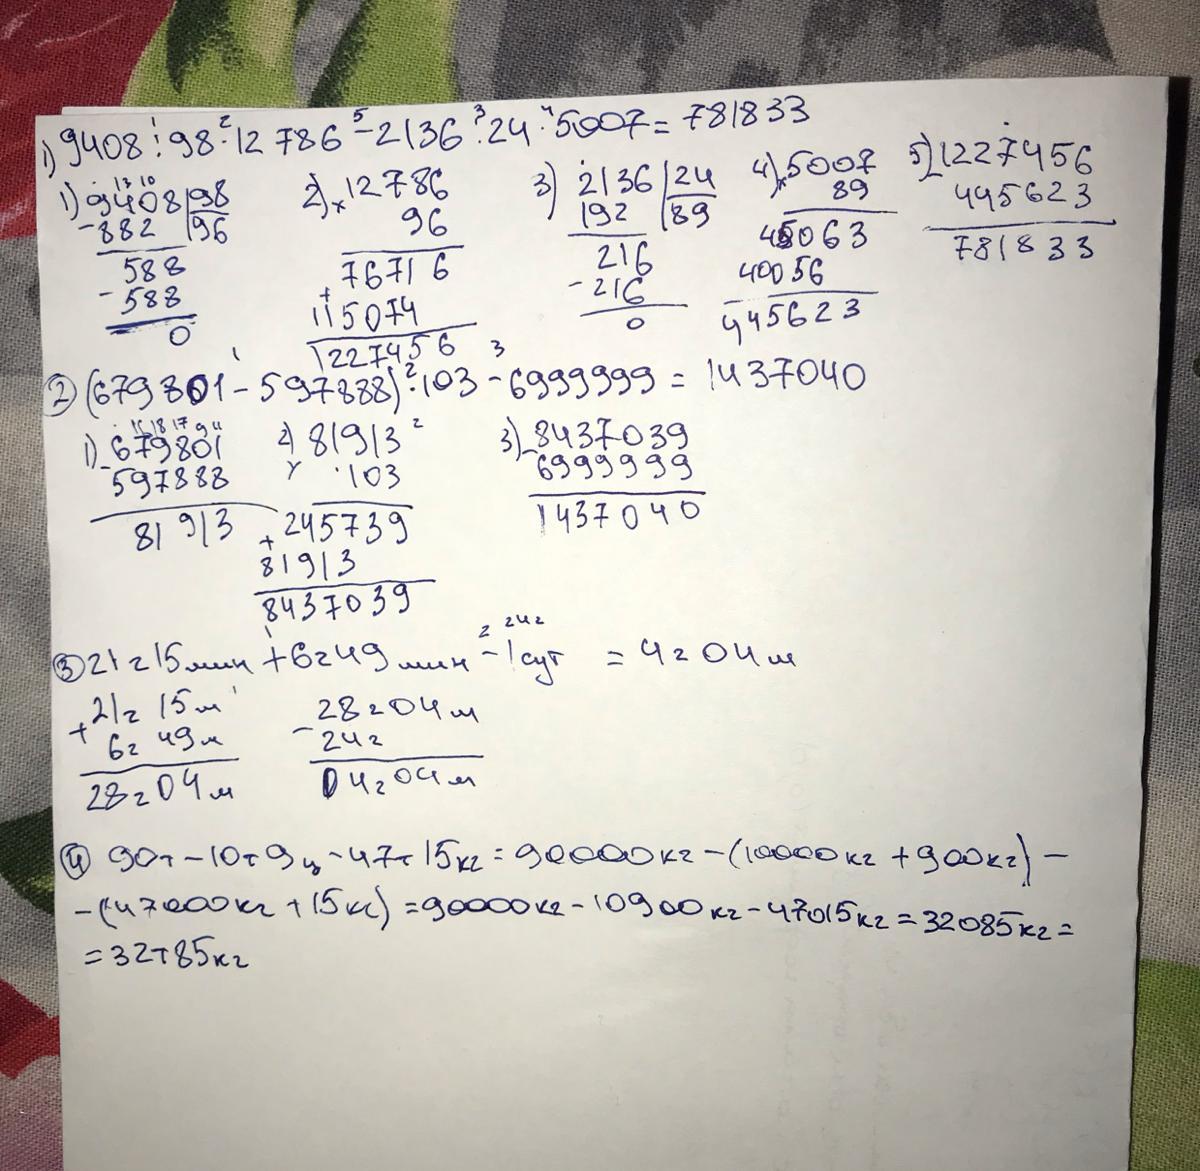 1) 9408 : 98 · 12786 - 2136 : 24 · 5007 = 781833
1) 9408 | 98
- 882 | 96
588
- 588
0
2) x 12786
96
76716
+
115074
1227456
3) 2136 | 24
192 | 89
216
- 216
0
4) x 5007
89
45063
40056
445623
5) - 1227456
445623
781833
② (679801 - 597888) · 103 - 6999999 = 1437040
1) - 679801
597888
81913
2) 81913
x 103
+ 245739
81913
8437039
3) - 8437039
6999999
1437040
③ 21г 15мин + 6г 49мин - 1сут = 4г 04м
+ 21г 15м
6г 49м
28г 04м
- 28г 04м
24г
04г 04м
④ 90т - 10т 9ц - 47т 15кг = 90000кг - (10000кг + 900кг) -
- (47000кг + 15кг) = 90000кг - 10900кг - 47015кг = 32085кг =
= 32т 85кг